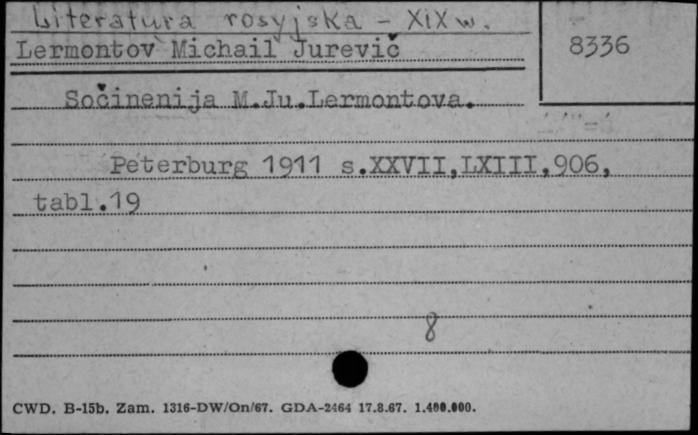 Literatura rosyjska - XIX w.
Lermontov Michail Jurevič
8336
Sočinenija M.Ju.Lermontova.
Peterburg 1911 s.XXVII,LXIII,906,
tabl.19
8
CWD. B-15b. Zam. 1316-DW/On/67. GDA-2464 17.8.67. 1.400.000.